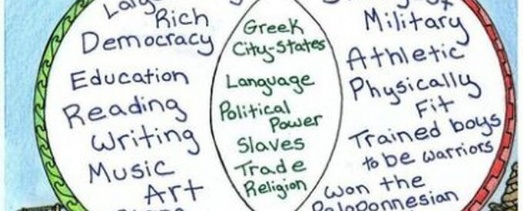 Rich
Democracy
Education
Reading
Writing
Music
Art
Greek
City-States
Language
Political
Power
Slaves
Trade
Religion
Military
Athletic
Physically
Fit
Trained boys
to be warriors
won the